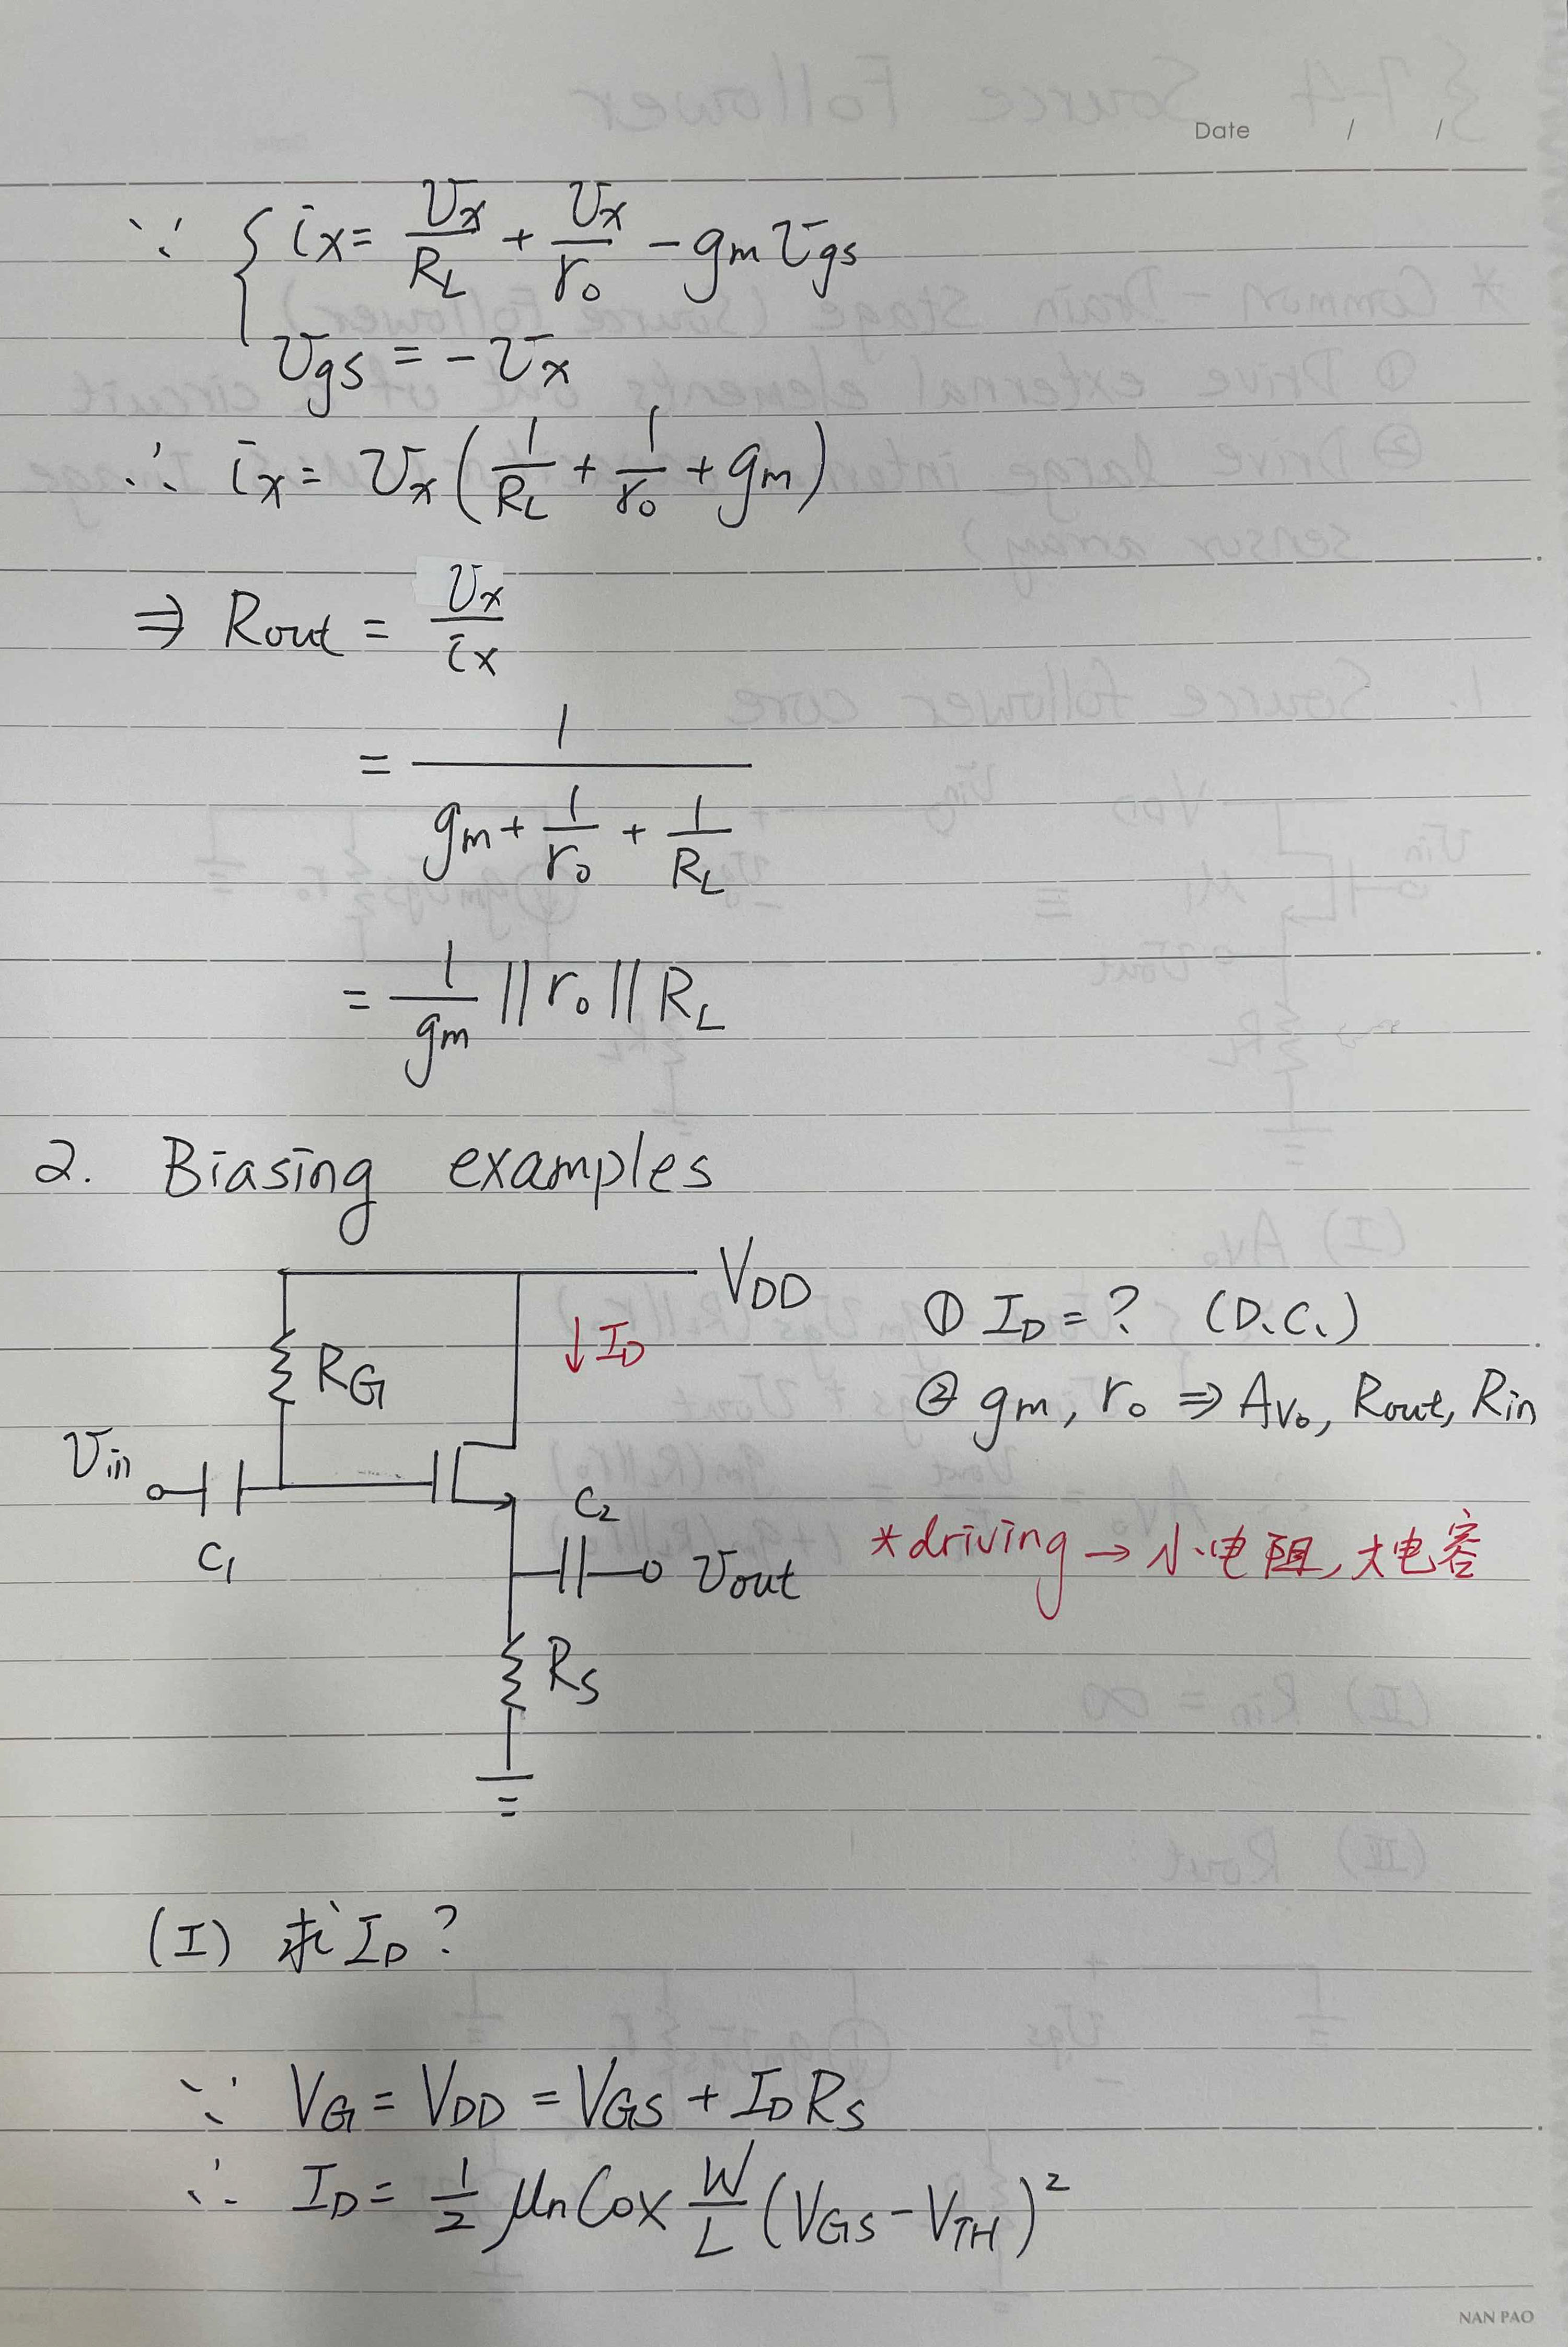 Date / /
∵ { ix = vx/RL + vx/ro - gm vgs
vgs = - vx
∴ ix = vx ( 1/RL + 1/ro + gm )
⇒ Rout = vx/ix
= 1/(gm + 1/ro + 1/RL)
= 1/gm || ro || RL
2. Biasing examples
VDD
① ID = ? (D.C.)
↓ ID
RG
② gm, ro ⇒ Avo, Rout, Rin
vin
C1
C2
vout
*driving → 小电阻, 大电容
RS
(I) 求 ID ?
∵ VG = VDD = VGS + ID RS
∴ ID = 1/2 μn Cox W/L (VGS - VTH)²
NAN PAO